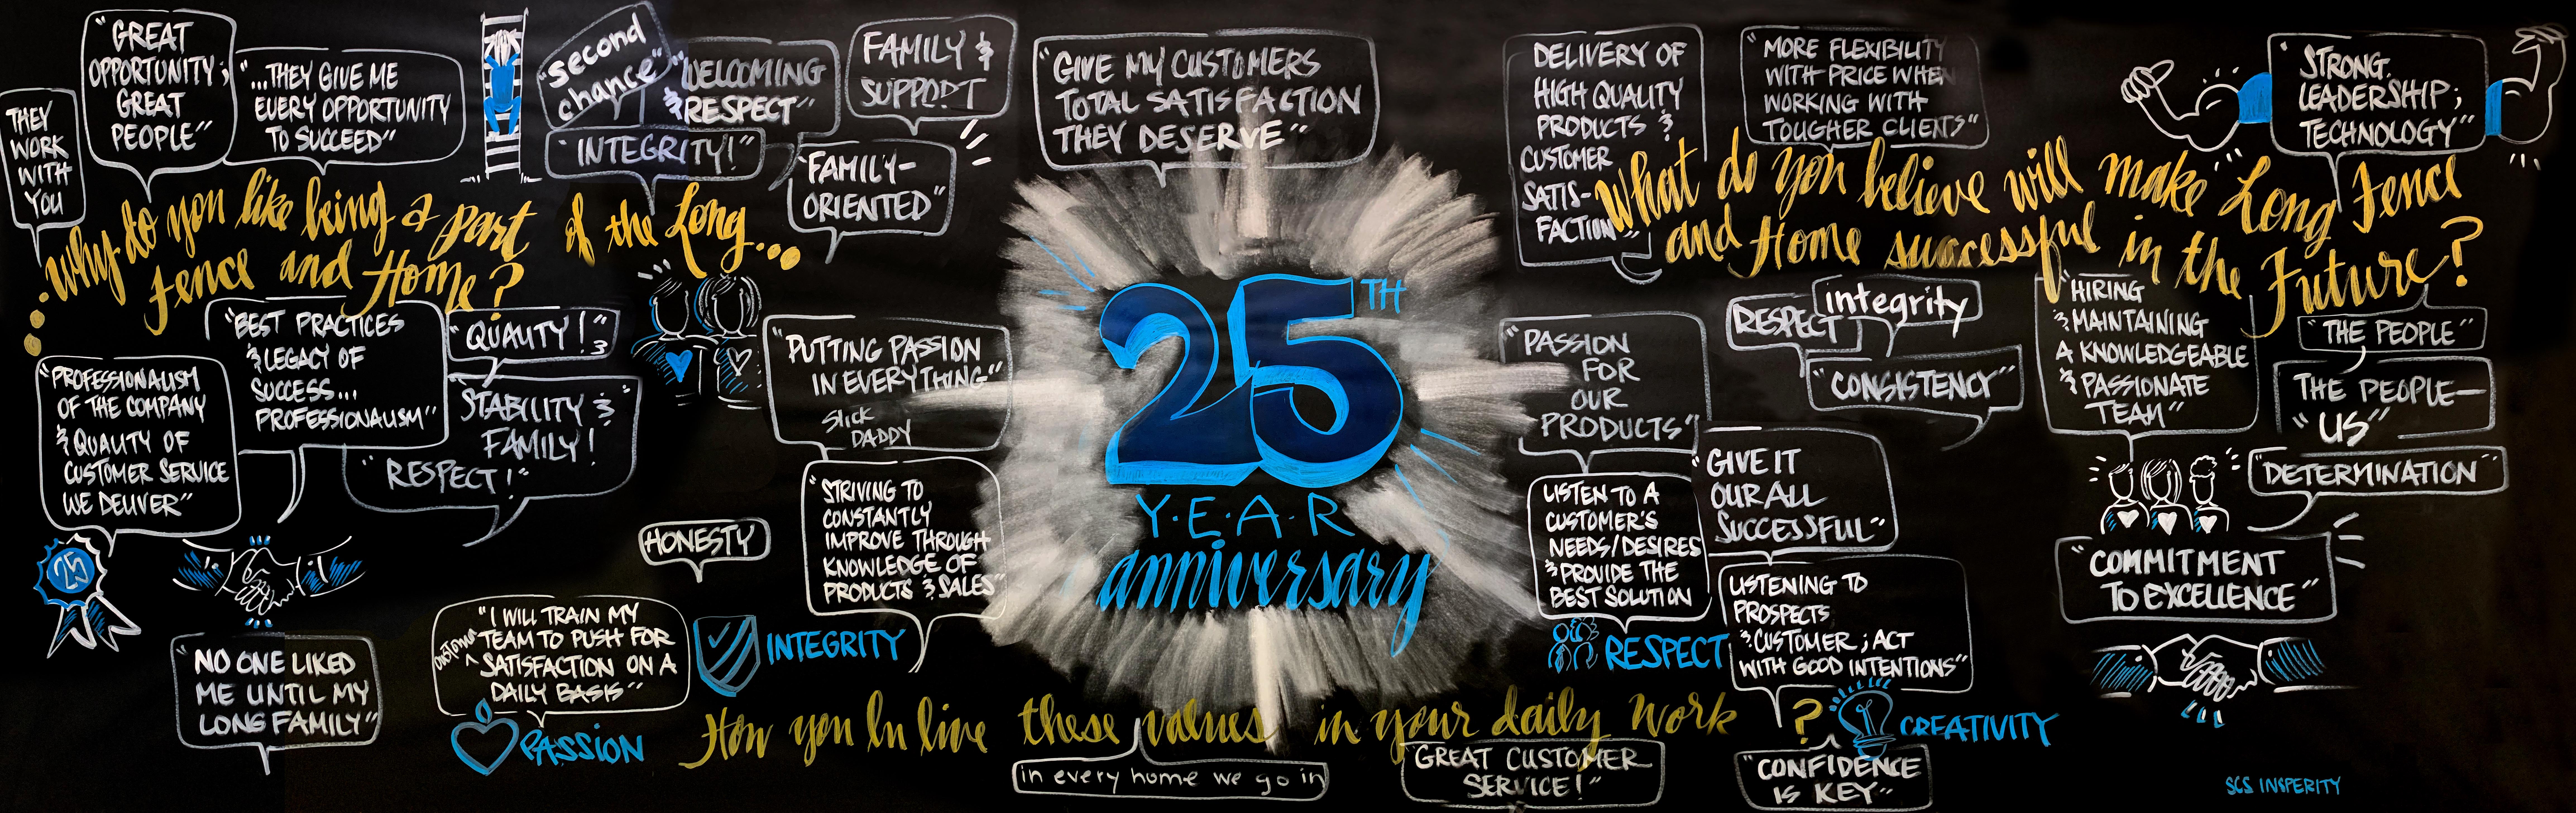 THEY
WORK
WITH
YOU
"GREAT
OPPORTUNITY;
GREAT
PEOPLE"
"...THEY GIVE ME
EVERY OPPORTUNITY
TO SUCCEED"
"second
chance"
"WELCOMING
& RESPECT"
"INTEGRITY!"
FAMILY &
SUPPORT
"FAMILY-
ORIENTED"
..why do you like being a part of the Long...
Fence and Home?
"BEST PRACTICES
& LEGACY OF
SUCCESS...
PROFESSIONALISM"
"QUALITY!"
&
"STABILITY &
FAMILY!
"RESPECT!"
"PROFESSIONALISM
OF THE COMPANY
& QUALITY OF
CUSTOMER SERVICE
WE DELIVER"
25
"NO ONE LIKED
ME UNTIL MY
LONG FAMILY"
"PUTTING PASSION
IN EVERYTHING"
Slick
DADDY
"STRIVING TO
CONSTANTLY
IMPROVE THROUGH
KNOWLEDGE OF
PRODUCTS & SALES"
HONESTY
"I WILL TRAIN MY
TEAM TO PUSH FOR
CUSTOMER ^ SATISFACTION ON A
DAILY BASIS"
PASSION
INTEGRITY
"GIVE MY CUSTOMERS
TOTAL SATISFACTION
THEY DESERVE"
25TH
Y·E·A·R
anniversary
How you live these values in your daily work ?
in every home we go in
"GREAT CUSTOMER
SERVICE!"
DELIVERY OF
HIGH QUALITY
PRODUCTS &
CUSTOMER
SATIS-
FACTION"
"MORE FLEXIBILITY
WITH PRICE WHEN
WORKING WITH
TOUGHER CLIENTS"
"STRONG
LEADERSHIP;
TECHNOLOGY"
What do you believe will make Long Fence
and Home successful in the Future?
"PASSION
FOR
OUR
PRODUCTS"
RESPECT
integrity
"CONSISTENCY"
"HIRING
& MAINTAINING
A KNOWLEDGEABLE
& PASSIONATE
TEAM"
"THE PEOPLE"
THE PEOPLE—
"US"
"DETERMINATION"
"GIVE IT
OUR ALL
SUCCESSFUL"
LISTEN TO A
CUSTOMER'S
NEEDS/DESIRES
& PROVIDE THE
BEST SOLUTION
RESPECT
LISTENING TO
PROSPECTS
& CUSTOMER; ACT
WITH GOOD INTENTIONS"
CREATIVITY
"CONFIDENCE
IS KEY"
"COMMITMENT
TO EXCELLENCE"
SCS INSPERITY